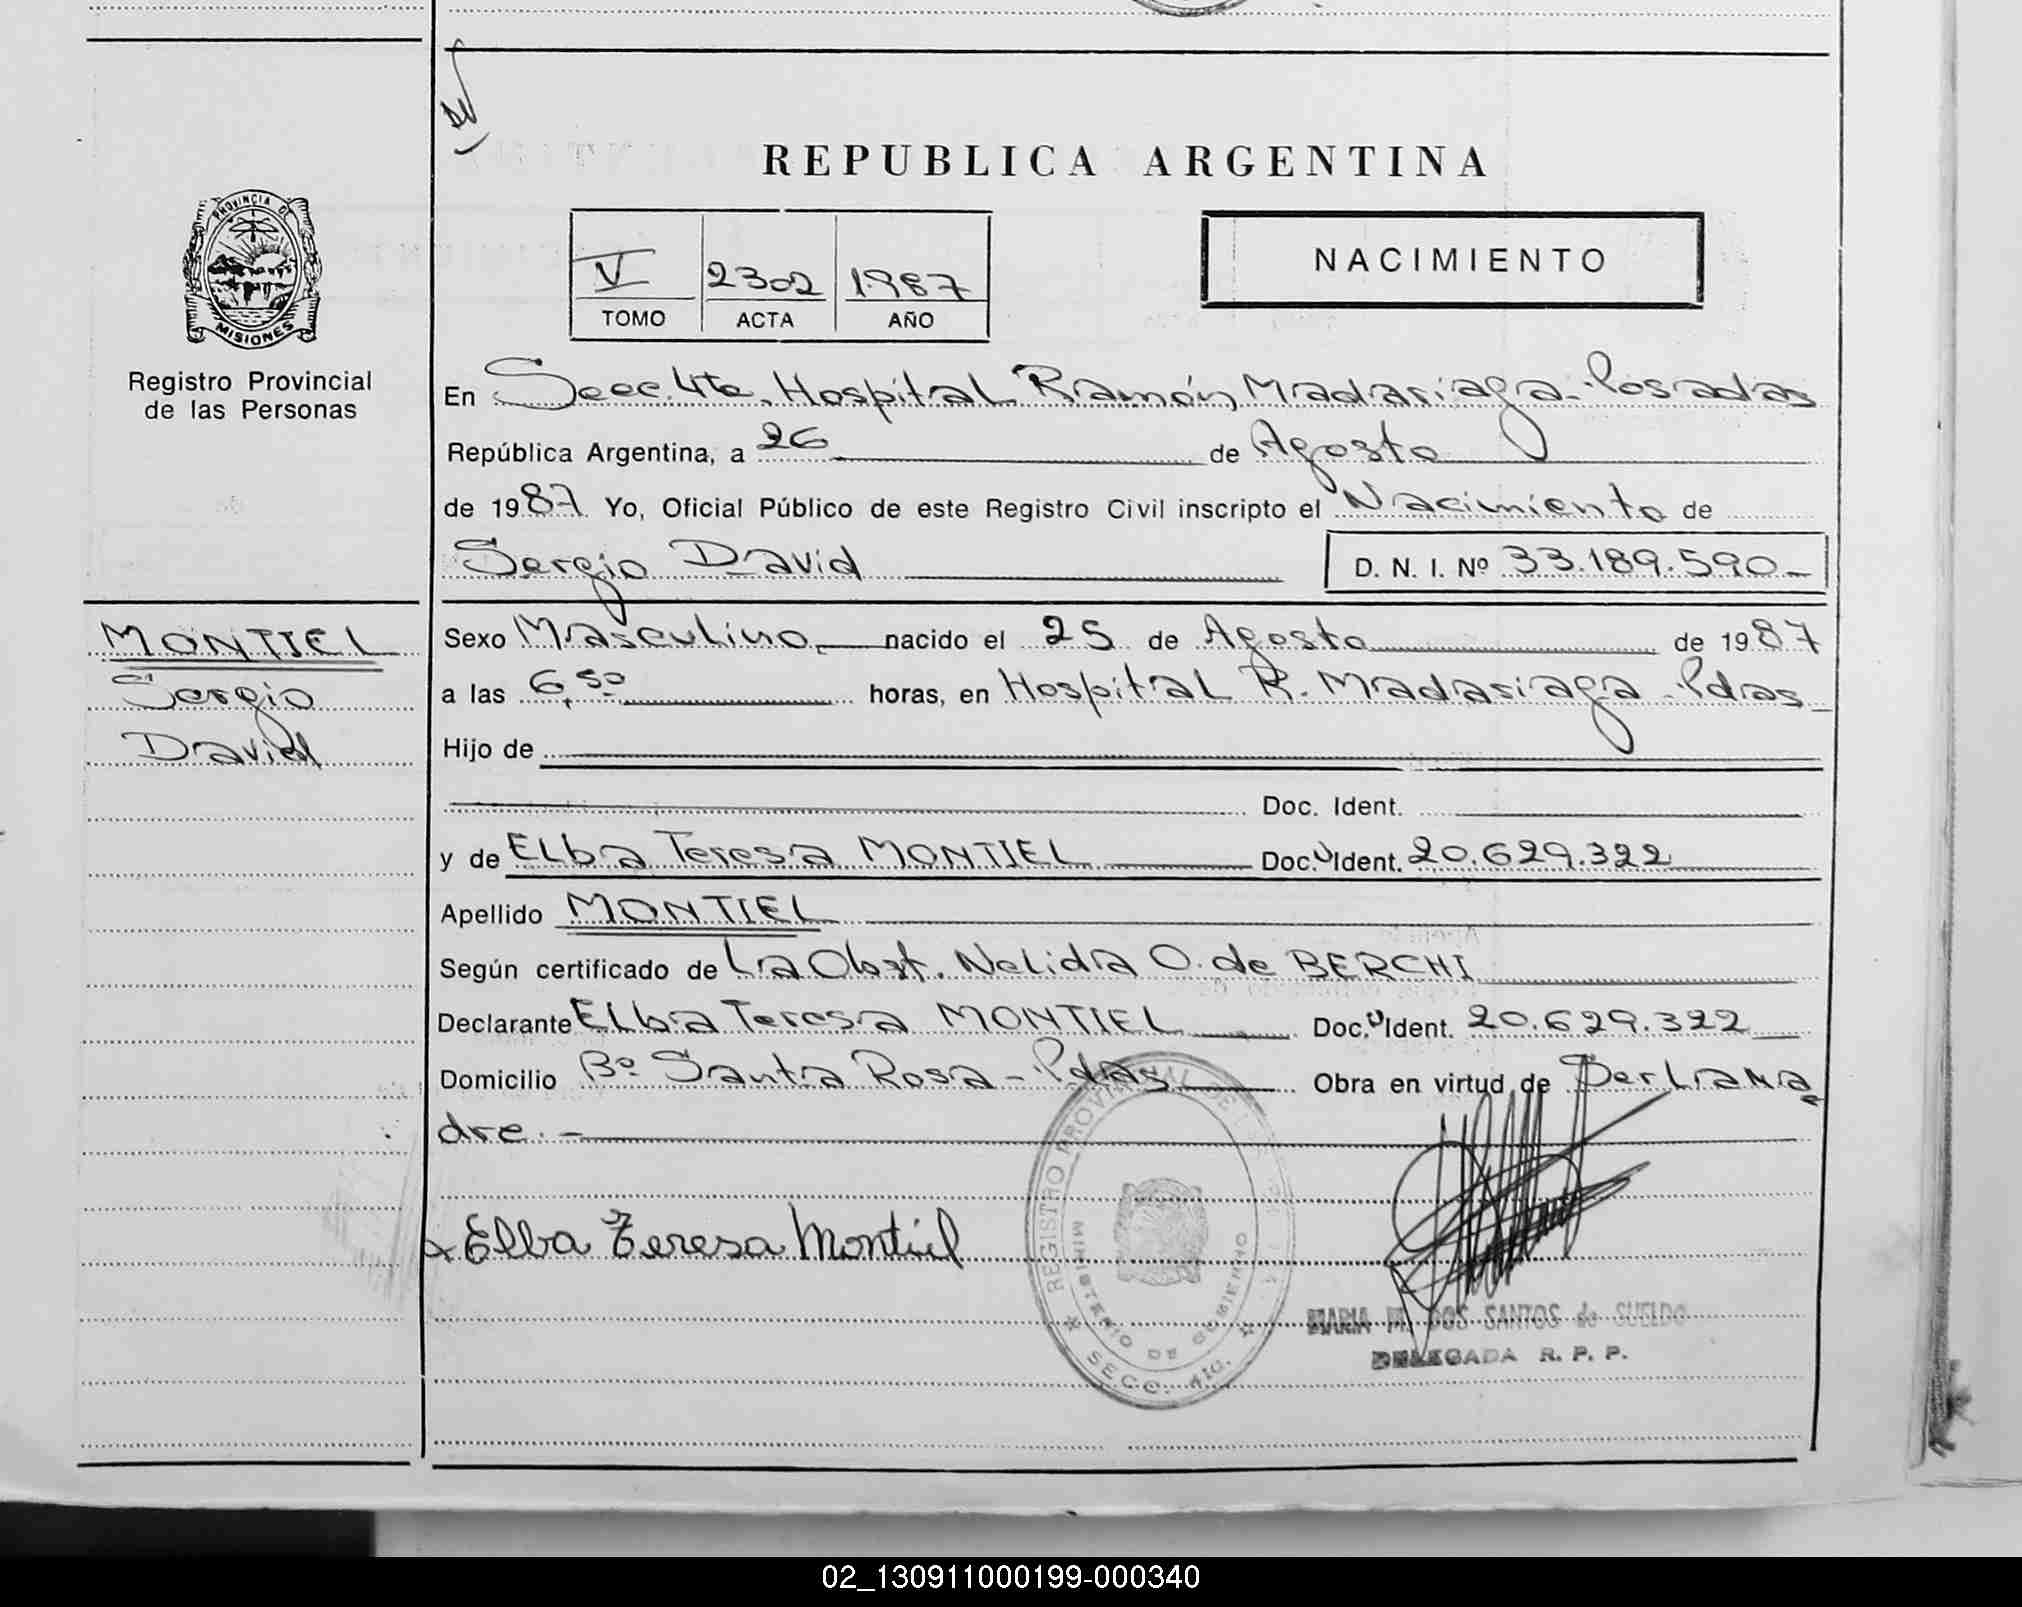 REPUBLICA ARGENTINA
PROVINCIA DE
MISIONES
Registro Provincial
de las Personas
V 2302 1987
TOMO ACTA AÑO
NACIMIENTO
En Secc. 4ta. Hospital Ramón Madariaga - Posadas
República Argentina, a 26 de Agosto
de 1987 Yo, Oficial Público de este Registro Civil inscripto el Nacimiento de
Sergio David D. N. I. Nº 33.189.590-
MONTIEL
Sergio
David
Sexo Masculino nacido el 25 de Agosto de 1987
a las 6,50 horas, en Hospital R. Madariaga - Pdas
Hijo de
Doc. Ident.
y de Elba Teresa MONTIEL Doc. Ident. 20.629.322
Apellido MONTIEL
Según certificado de La Obst. Nelida O. de BERCHI
Declarante Elba Teresa MONTIEL Doc. Ident. 20.629.322
Domicilio Bº Santa Rosa - Pdas Obra en virtud de Ser La Ma
dre.-
x Elba Teresa Montiel
REGISTRO PROVINCIAL DE
MINISTERIO DE GOBIERNO
SECC. 4ta.
MARIA M. DOS SANTOS de SUELDO
DELEGADA R. P. P.
02_130911000199-000340